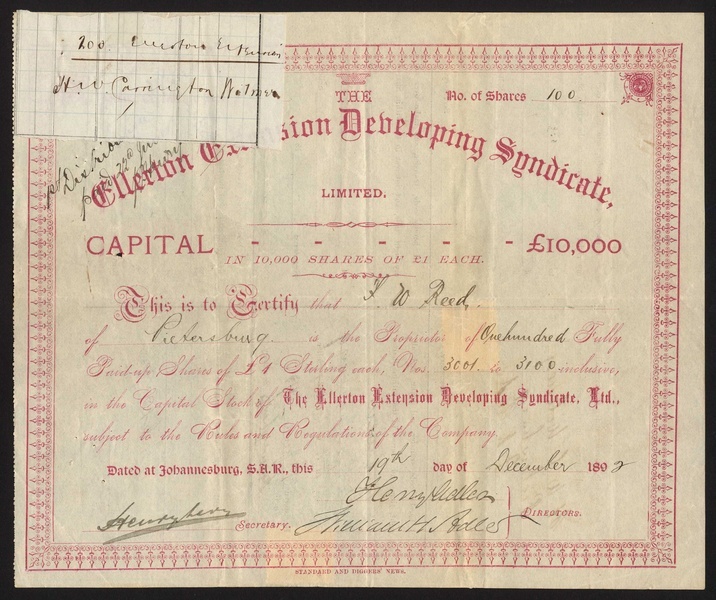 200
H. W. Carrington Wolmer
THE
No. of Shares 100.
Ellerton Extension Developing Syndicate,
LIMITED.
CAPITAL - - - - - £10,000
IN 10,000 SHARES OF £1 EACH.
This is to Certify that F W Reed.
of Pietersburg is the Proprietor of One hundred Fully
Paid-up Shares of £1 Sterling each, Nos. 3001 to 3100 inclusive,
in the Capital Stock of The Ellerton Extension Developing Syndicate, Ltd.,
subject to the Rules and Regulations of the Company.
Dated at Johannesburg, S.A.R., this 19th day of December 1892
Henry
Secretary.
William H.
DIRECTORS.
STANDARD AND DIGGERS' NEWS.